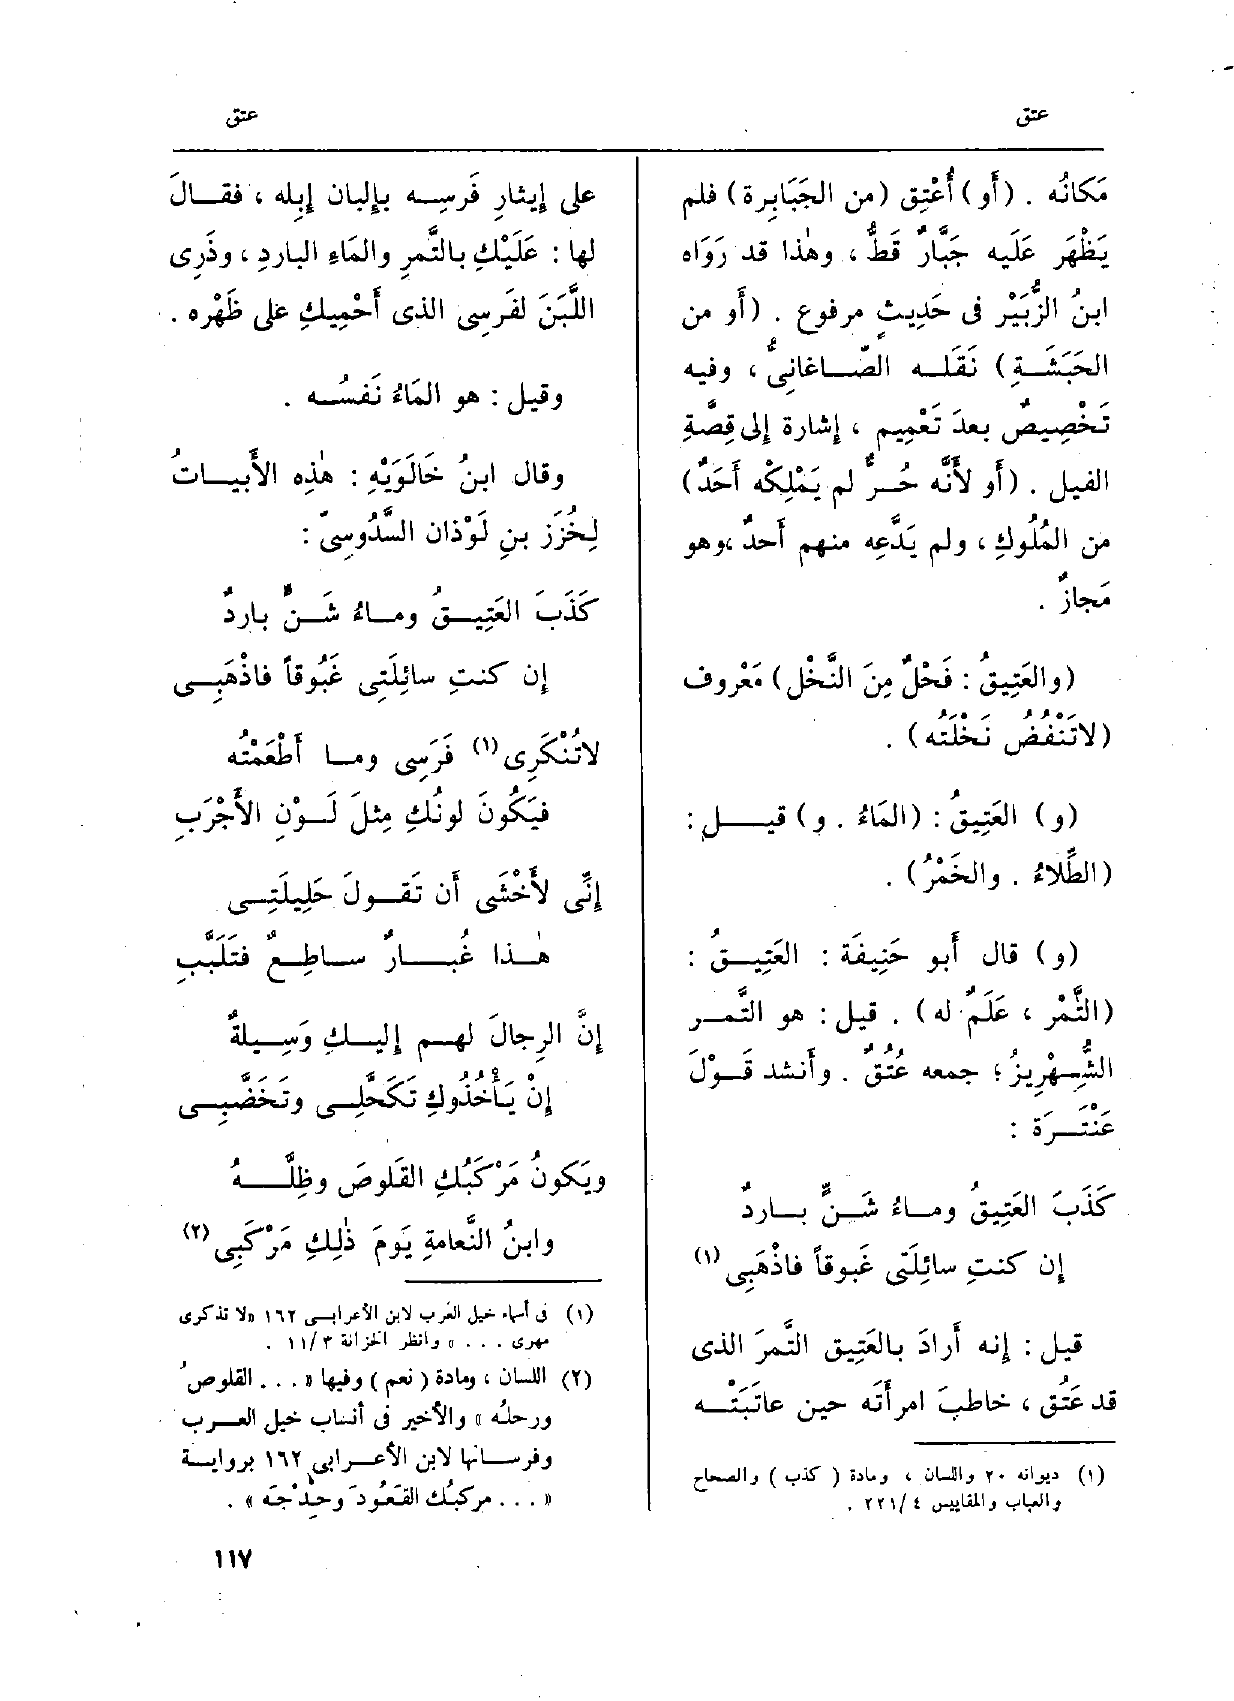 عتق
عتق
مَكانُه . (أو) أُعْتِق (من الجَبَابِرة) فلم
يَظْهَر عَلَيه جَبَّارٌ قَطُّ ، وهٰذا قد رَوَاه
ابنُ الزُّبَيْر فى حَدِيثٍ مرفوع . (أو من
الحَبَشَـةِ) نَقَلـه الصّـاغانِىُّ ، وفيه
تَخْصِيصٌ بعدَ تَعْمِيمٍ ، إشارة إلى قِصَّةِ
الفيل . (أو لأَنَّه حُـرٌّ لم يَمْلِكْه أَحَدٌ)
من المُلُوكِ ، ولم يَدَّعِه منهم أَحدٌ ،وهو
مَجازٌ .
(والعَتِيقُ : فَحْلٌ مِنَ النَّخْلِ) مَعْروف
(لاتَنْفُضُ نَخْلَتُه) .
(و) العَتِيقُ : (المَاءُ . و) قيـــل :
(الطِّلاءُ . والخَمْرُ) .
(و) قال أَبو حَنِيفَة : العَتِيـــقُ :
(التَّمْر ، عَلَمٌ له) . قيل : هو التَّمـر
الشُّهْرِيزُ ؛ جمعه عُتُقٌ . وأَنشد قَـوْلَ
عَنْتَـرَة :
كَذَبَ العَتِيقُ ومـاءُ شَـنٍّ بـاردٌ
إن كنتِ سائِلَتِى غَبوقاً فاذْهَبِى (١)
قيل : إنه أَرادَ بالعَتِيق التَّمرَ الذى
قد عَتُق ، خاطبَ امرأَته حين عاتَبَتْـه
(١) ديوانه ٢٠ واللسان ، ومادة ( كذب ) والصحاح
والعباب والمقاييس ٤ /٢٢١ .
على إِيثارِ فَرسِـه بإِلبان إِبِله ، فقــالَ
لها : عَلَيْكِ بالتَّمرِ والمَاءِ البارِدِ ، وذَرِى
اللَّبَنَ لفَرسِى الذى أَحْمِيكِ على ظَهْره .
وقيل : هو المَاءُ نَفسُـه .
وقال ابنُ خَالَوَيْهِ : هٰذِه الأَبيـاتُ
لِخُزَز بنِ لَوْذان السَّدُوسِىّ :
كَذَبَ العَتِيـقُ ومـاءُ شَـنٍّ باردٌ
إن كنتِ سائِلَتِى غَبُوقاً فاذْهَبِـى
لاتُنْكِرِى (١) فَرَسِى ومـا أَطْعَمْتُه
فيَكُونَ لونُكِ مِثلَ لَـوْنِ الأَجْرَبِ
إِنِّى لأَخْشَى أَن تَقـولَ حَلِيلَتِـى
هـذا غُبــارٌ سـاطِـعٌ فتَلَبَّبِ
إِنَّ الرِجالَ لهـم إِليـكِ وَسِيلةٌ
إِنْ يَأْخُذُوكِ تَكَحَّلِـى وتَخَضَّبِـى
ويَكونُ مَرْكَبُكِ القَلوصَ وظِلُّــهُ
وابنُ النَّعامةِ يَومَ ذٰلِكِ مَرْكَبِى (٢)
(١) فى أسماء خيل العرب لابن الأعرابـى ١٦٢ «لا تذكرى
مهرى . . . » وانظر الخزانة ٣ /١١ .
(٢) اللسان ، ومادة ( نعم ) وفيها « . . . القلوصُ
ورحلُه » والأخير فى أنساب خيل العـرب
وفرسـانها لابن الأعـرابى ١٦٢ بروايـة
« . . . مركبُك القَعُود وحِدْجَه » .
١١٧